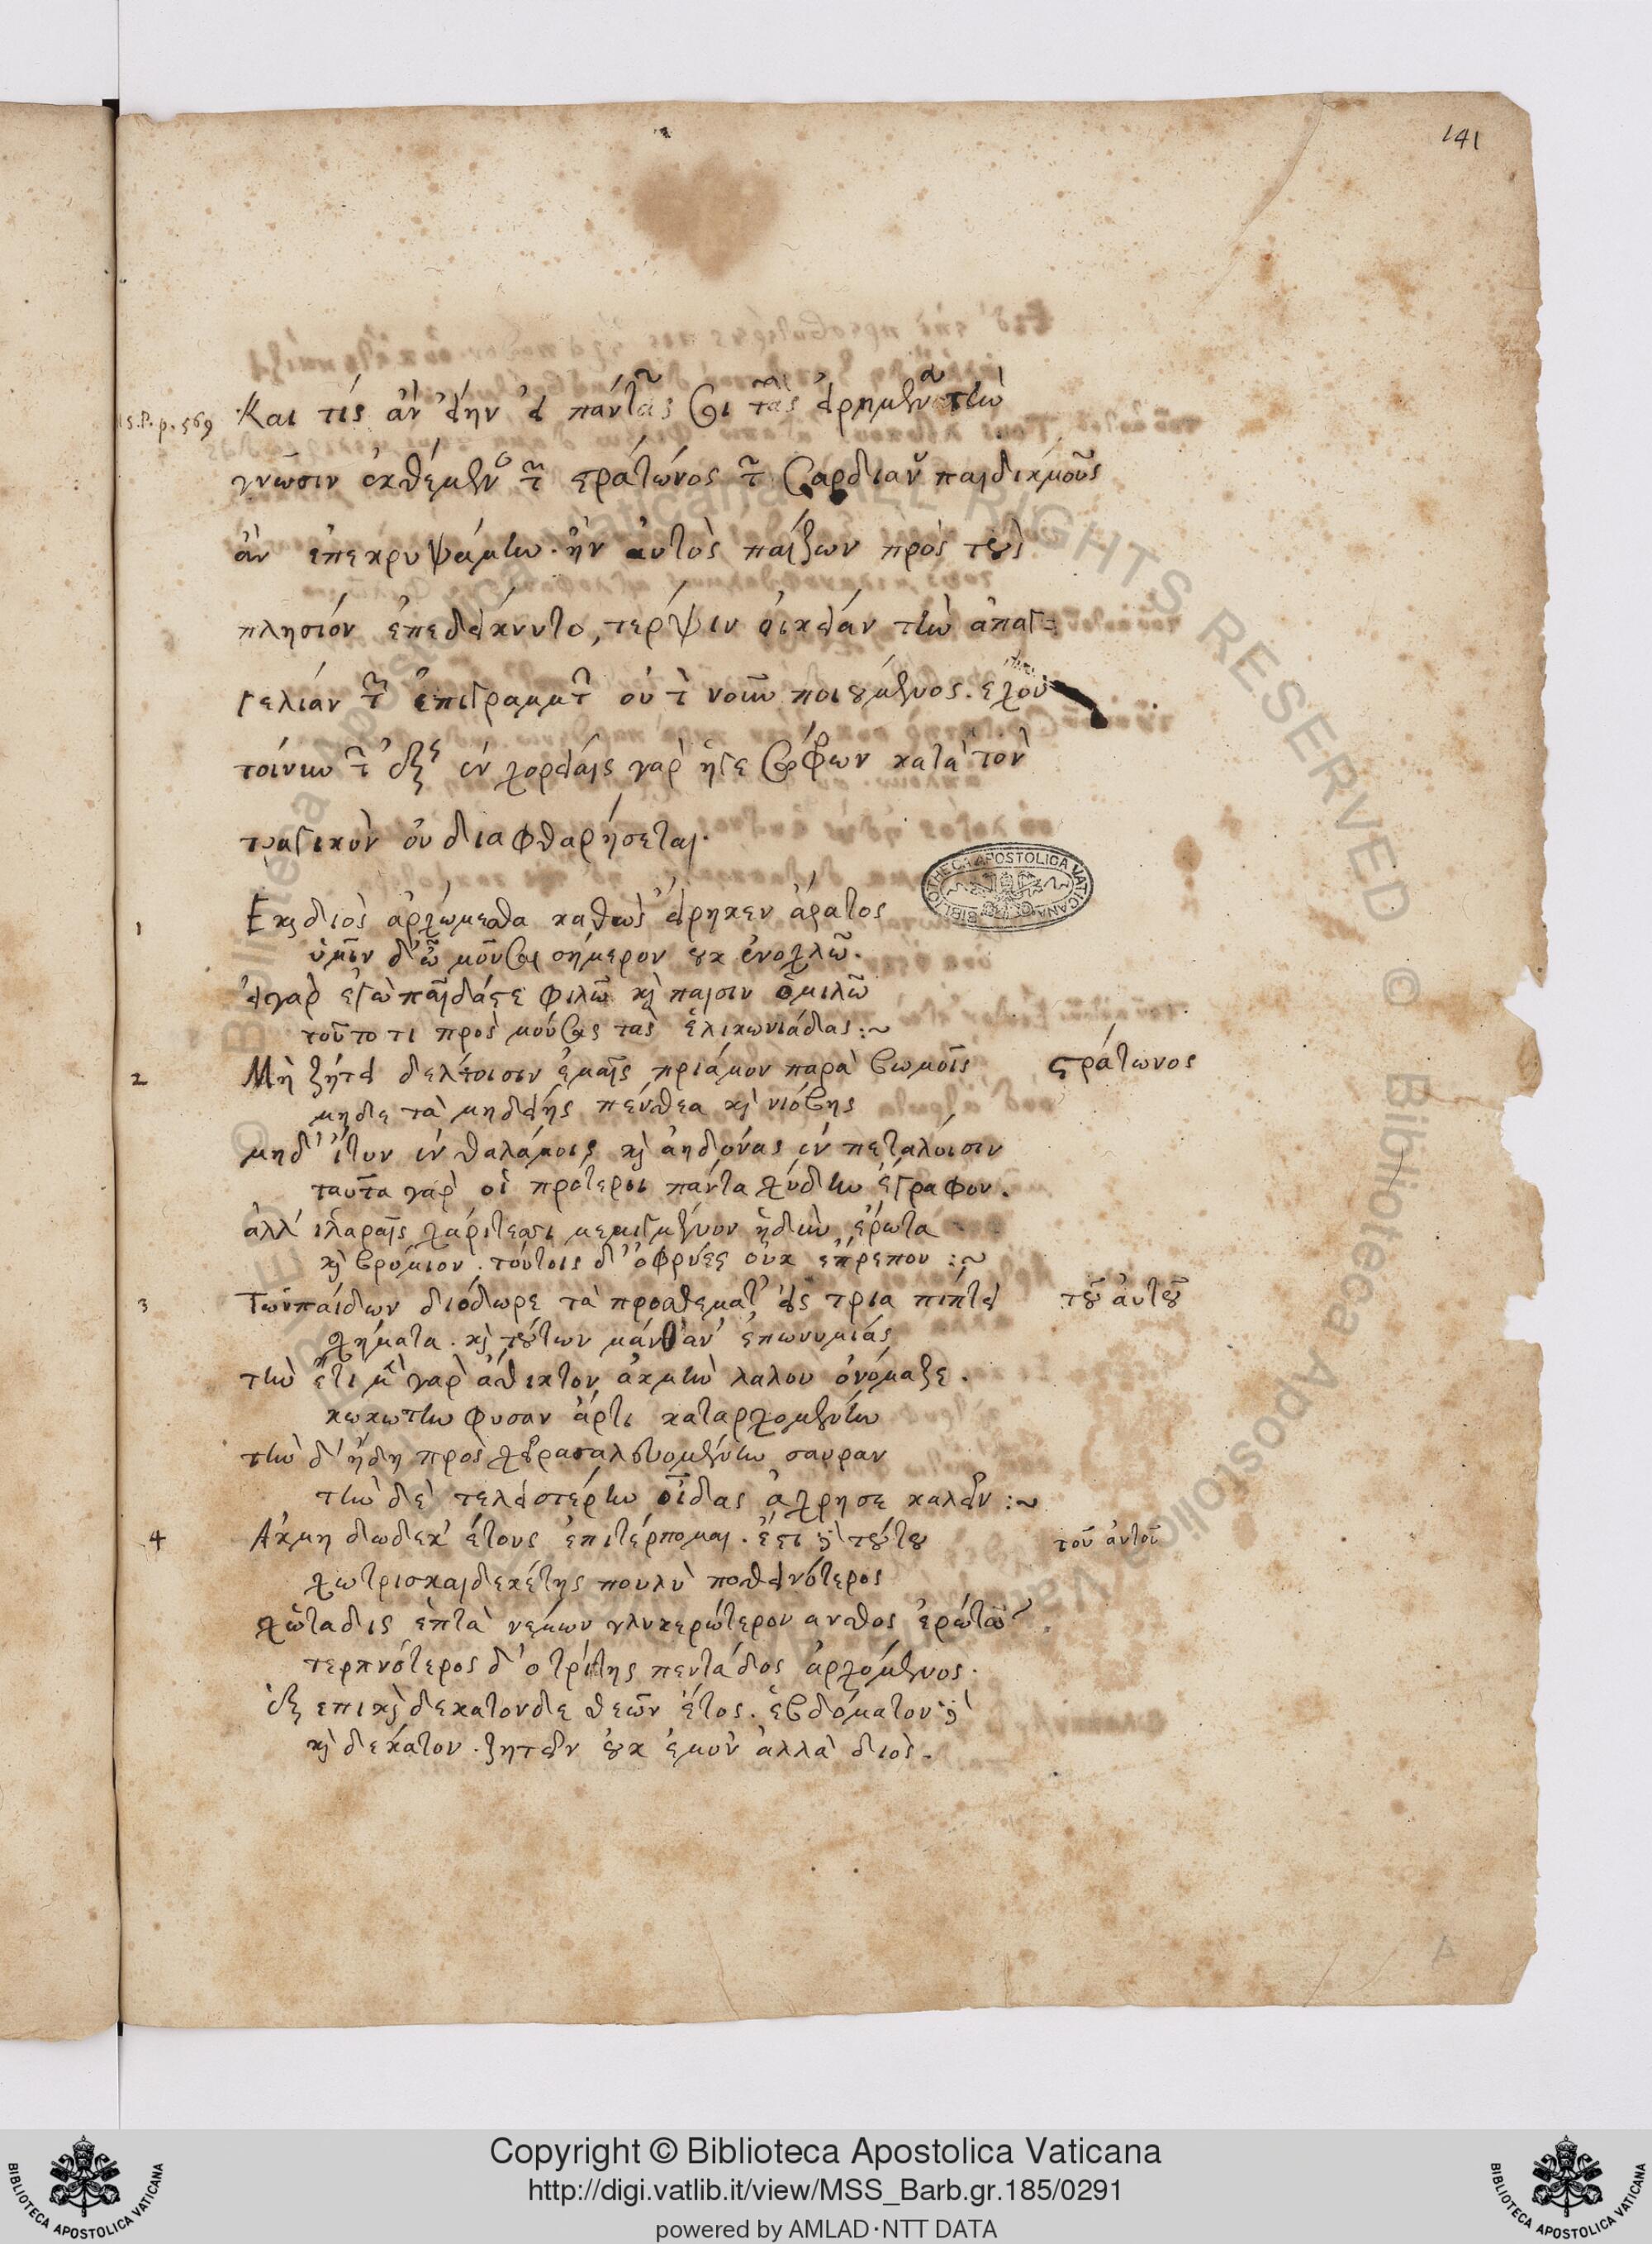 141
S.P. p. 569
Και τίς ἂν εἴην εἰ πάντα σοι τὰ εἰρημένα τὴν
γνῶσιν ἐκθέμενος τοῦ Στράτωνος τοῦ Σαρδιανοῦ παιδικὴν μοῦσαν
ἂν ἐπεκρυψάμην. ἣν αὐτὸς παίζων πρὸς τοὺς
πλησίον ἐπεδείκνυτο, τέρψιν οἰκείαν τὴν ἀπαγ-
γελίαν τῶν ἐπιγραμμάτων οὐ τὸν νοῦν ποιούμενος. ἔχου
τοίνυν τῶν ἑξῆς ἐν χορείαις γὰρ ἥγε σώφρων κατὰ τὸν
τραγικὸν οὐ διαφθαρήσεται.
1
Εκ διὸς ἀρχώμεσθα καθὼς εἴρηκεν ἄρατος
ὑμῖν δ' ὦ μοῦσαι σήμερον ουκ ἐνοχλῶ.
εἰ γὰρ ἐγὼ παῖδάς τε φιλῶ καὶ παισιν ὁμιλῶ
τοῦτο τι πρὸς μούσας τὰς ἑλικωνιάδας :~
2
Μὴ ζήτει δελτοισιν ἐμαῖς πρίαμον παρὰ βωμοῖς
στράτωνος
μηδε τὰ μηδείης πένθεα καὶ νιόβης
μηδ' ἴτυν ἐν θαλάμοις καὶ ἀηδόνας ἐν πετάλοισιν
ταῦτα γὰρ οἱ πρότεροι πάντα χύδην ἔγραφον.
ἀλλ' ἱλαραῖς χαρίτεσσι μεμιγμένον ἡδὺν ἔρωτα
καὶ βρόμιον. τούτοις δ' ὀφρύες οὐκ ἔπρεπον :~
3
Τῶν παίδων διόδωρε τὰ προσθεματ' εἰς τρια πίπτει
τοῦ αὐτοῦ
σχήματα. καὶ τούτων μάνθαν' ἐπωνυμίας
τὴν ἔτι μὲν γὰρ ἄθικτον ἀκμὴν λαλου ὀνόμαζε.
κωκω τὴν φυσαν ἄρτι καταρχομένην
τὴν δ' ἤδη πρὸς χεῖρα σαλευομένην σαυραν
τὴν δὲ τελειοτέρην οἶδας ἃ χρή σε καλεῖν :~
4
Ακμη δωδεκ' έτους ἐπιτέρπομαι. ἔστι δὲ τούτου
τοῦ αὐτοῦ
χω τρισκαιδεκέτης πουλὺ ποθεινότερος
χὠ τα δις ἑπτὰ νέμων γλυκερώτερον ανθος ἐρώτων
τερπνότερος δ' ο τρίτης πεντάδος ἀρχόμενος.
ἑξ επι καὶ δεκατον δε θεῶν ἔτος. ἑβδόματον δὲ
καὶ δέκατον. ζητεῖν ουκ ἐμὸν ἀλλὰ διὸς.
BIBLIOTHECA APOSTOLICA VATICANA
Copyright © Biblioteca Apostolica Vaticana
http://digi.vatlib.it/view/MSS_Barb.gr.185/0291
powered by AMLAD·NTT DATA